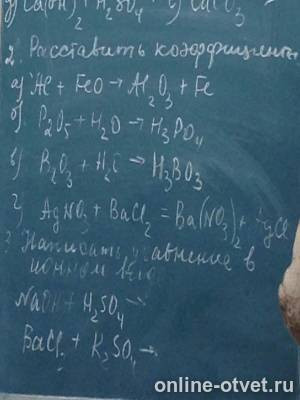 у) Ca(OH)₂ + H₂SO₄ с) CaCO₃
2. Расставить коэффициенты
а) Al + FeO → Al₂O₃ + Fe
б) P₂O₅ + H₂O → H₃PO₄
в) B₂O₃ + H₂O → H₃BO₃
г) AgNO₃ + BaCl₂ = Ba(NO₃)₂ + AgCl
3. Написать уравнение в
ионном
NaOH + H₂SO₄ →
BaCl₂ + K₂SO₄ →
online-otvet.ru